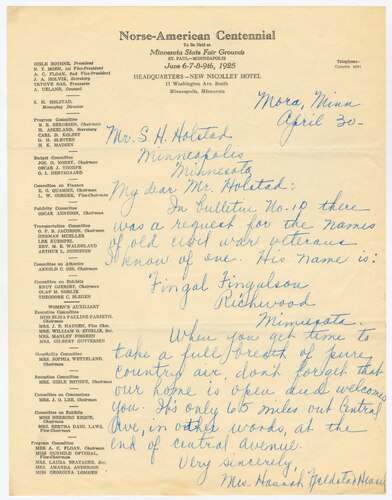 Norse-American Centennial
To Be Held at
Minnesota State Fair Grounds
ST. PAUL—MINNEAPOLIS
June 6-7-8-9th, 1925
HEADQUARTERS—NEW NICOLLET HOTEL
11 Washington Ave. South
Minneapolis, Minnesota
Telephone:
GISLE BOTHNE, President
N. T. MOEN, 1st Vice-President
A. C. FLOAN, 2nd Vice-President
J. A. HOLVIK, Secretary
TRYGVE OAS, Treasurer
A. UELAND, Counsel
S. H. HOLSTAD,
Managing Director
Program Committee
B. E. BERGESEN, Chairman
H. ASKELAND, Secretary
CARL D. KOLSET
O. H. SLETTEN
H. K. MADSEN
Budget Committee
JOS. G. NORBY, Chairman
OSCAR J. THORPE
O. I. HERTSGAARD
Committee on Finance
E. G. QUAMME, Chairman
L. W. GORDER, Vice-Chairman
Publicity Committee
OSCAR ARNESON, Chairman
Transportation Committee
O. P. B. JACOBSON, Chairman
HERMAN MUELLER
LEE KUEMPEL
REV. M. B. WALDELAND
ARTHUR L. JOHNSTON
Committee on Athletics
ARNOLD C. OSS, Chairman
Committee on Exhibits
KNUT GJERSET, Chairman
OLAF H. NORLIE
THEODORE C. BLEGEN
WOMEN'S AUXILIARY
Executive Committee
MISS ELISA PAULINE FARSETH,
Chairman
MRS. J. E. HAUGEN, Vice Chm.
MRS. WILLIAM O. STORLIE, Sec.
MRS. MANLEY FOSSEEN
MRS. GILBERT GUTTERSEN
Hospitality Committee
MRS. SOPHIA WETTELAND,
Chairman
Reception Committee
MRS. GISLE BOTHNE, Chairman
Committee on Concessions
MRS. J. O. LEE, Chairman
Committee on Exhibits
MISS HERBORG REQUE,
Chairman
MRS. BERTHA DAHL LAWS,
Vice-Chairman
Program Committee
MRS. A. C. FLOAN, Chairman
MISS GUNHILD OFTEDAL,
Vice-Chairman
MRS. LAURA BRATAGER, Sec.
MRS. AMANDA ANDERSON
MISS GEORGINA LOMMEN
Mora, Minn
April 30-
Mr. S. H. Holstad
Minneapolis
Minnesota
My dear Mr. Holstad:
In bulletin No. 10 there
was a request for the names
of old civil war veterans
I know of one. His name is:
Fingal Fingalson
Richwood
Minnesota.
When you get time to
take a full breath of pure
country air, don't forget that
our home is open and welcomes
you. It's only 65 miles out Central
Ave, in other words, at the
end of central avenue.
Very sincerely,
Mrs. Hannah